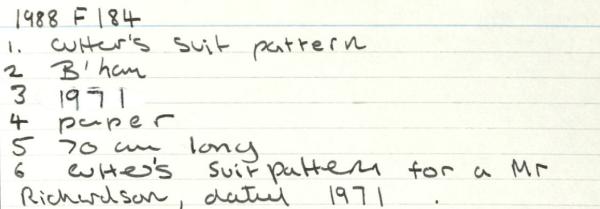 1988 F 184
1. cutter's suit pattern
2 B'ham
3 1971
4 paper
5 70 cm long
6 cutter's suit pattern for a Mr
Richardson, dated 1971 .